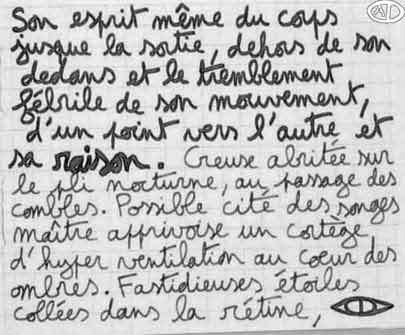 Son esprit même du corps
jusque la sortie, dehors de son
dedans et le tremblement
fébrile de son mouvement,
d'un point vers l'autre et
sa raison. Creuse abritée sur
le pli nocturne, au passage des
combles. Possible cité des songes
maître apprivoise un cortège
d'hyper ventilation au cœur des
ombres. Fastidieuses étoiles
collées dans la rétine,